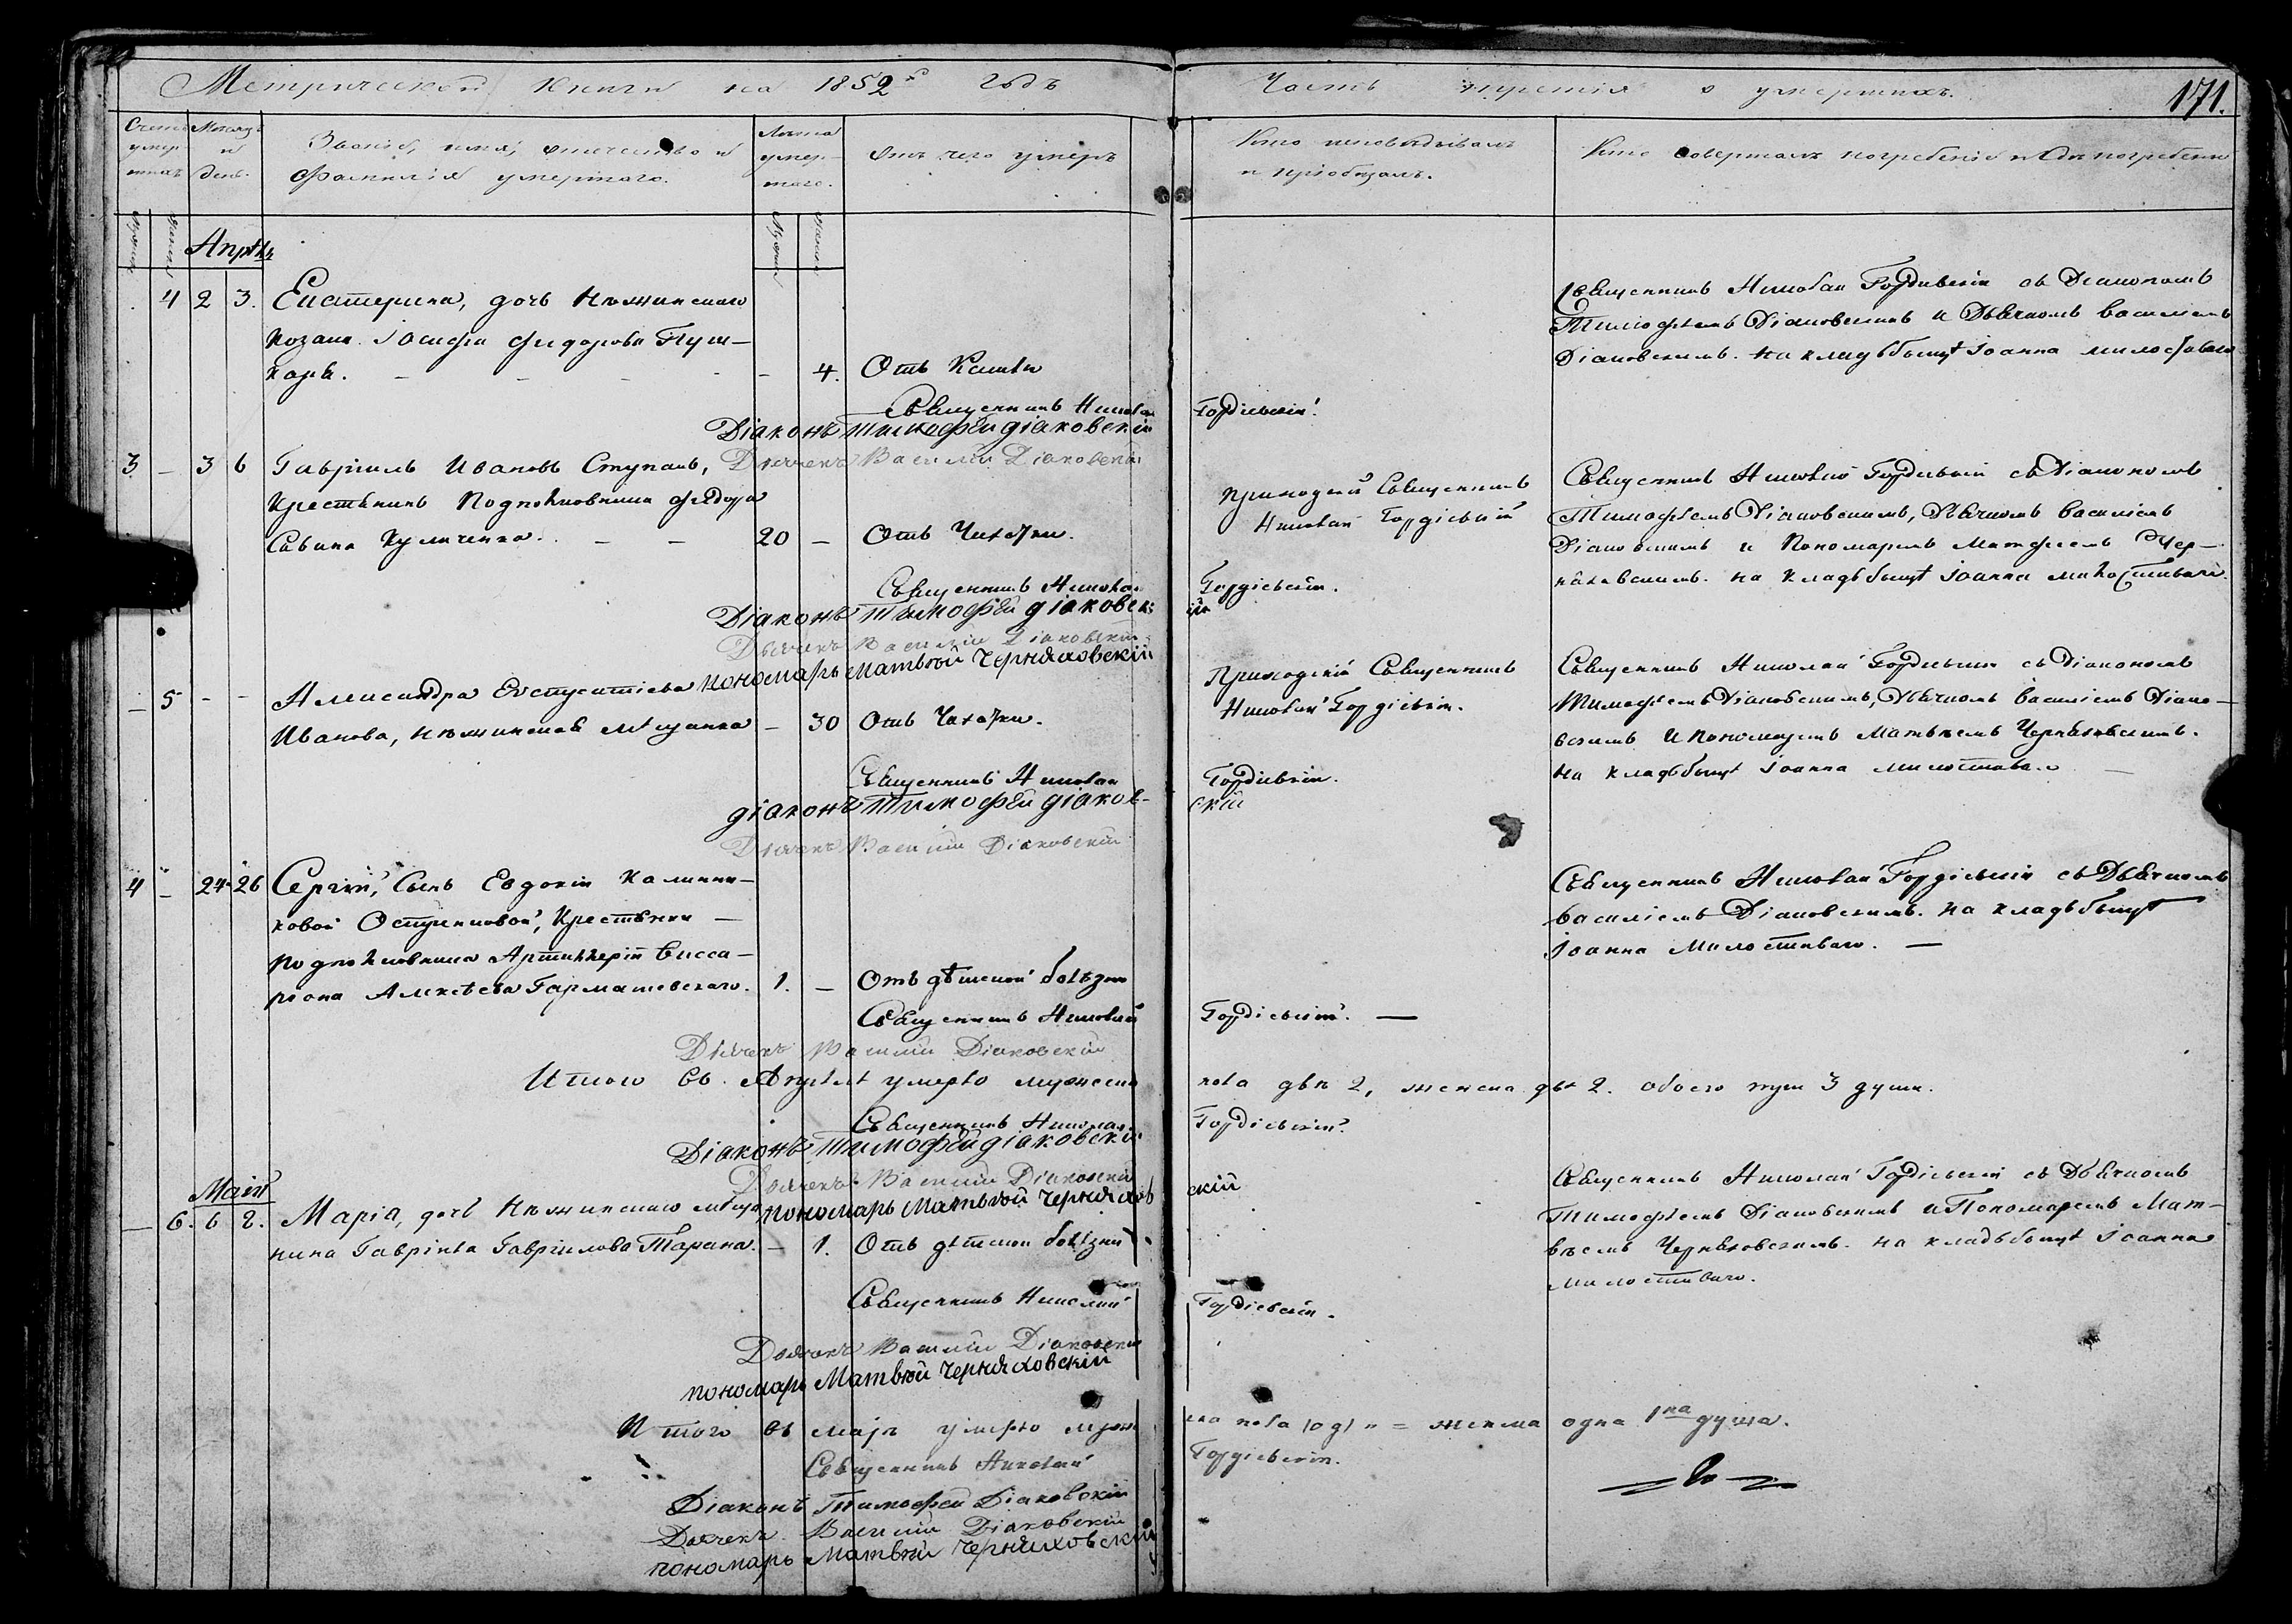 Метрической книги на 1852й годъ
Часть третія о умершихъ.
171.
Счетъ умершихъ
Мѣсяцъ и день.
Званіе, имя, отчество и фамилія умершаго.
Лѣта умершаго.
Отъ чего умеръ
Кто исповѣдывалъ и пріобщалъ.
Кто совершалъ погребеніе и гдѣ погребены
Апрѣль
4 2 3. Екатерина, дочь Нѣжинскаго
козака Іосифа Федорова Пуш-
каря. - - - - - 4. Отъ Кашля
Священникъ Николай Гордіевскій
Діаконъ Тимофей Діаковскій
Дьячекъ Василій Діаковскій
Священникъ Николай Гордіевскій съ Діакономъ
Тимофеемъ Діаковскимъ и Дьячкомъ Василіемъ
Діаковскимъ. На кладбищѣ Іоанна Милостиваго
3 - 3 6 Гавріилъ Ивановъ Ступакъ,
Крестьянинъ Подполковника Федора
Савина Куличенка. - - 20 - Отъ Чахотки.
Приходскій Священникъ
Николай Гордіевскій
Священникъ Николай Гордіевскій съ Діакономъ
Тимофеемъ Діаковскимъ, Дьячкомъ Василіемъ
Діаковскимъ и Пономаремъ Матфеемъ Чер-
няховскимъ. На кладбищѣ Іоанна Милостиваго.
Священникъ Николай Гордіевскій.
Діаконъ Тимофей Діаковскій
Дьячекъ Василій Діаковскій
пономарь Матвѣй Черняховскій
- 5 - - Александра Евстратіева
Иванова, Нѣжинская мѣщанка - 30 Отъ Чахотки.
Приходскій Священникъ
Николай Гордіевскій.
Священникъ Николай Гордіевскій съ Діакономъ
Тимофеемъ Діаковскимъ, Дьячкомъ Василіемъ Діако-
вскимъ и Пономаремъ Матвѣемъ Черняховскимъ.
На кладбищѣ Іоанна Милостиваго
Священникъ Николай Гордіевскій.
діаконъ Тимофей діаков-
скій
Дьячекъ Василій Діаковскій
4 - 24 26 Сергій, Сынъ Евдокіи Калини-
ковой Остриковой, Крестьянки -
Подполковника Артиллерій Висса-
ріона Алексѣева Гармашевскаго. 1. - Отъ дѣтской болѣзни
Священникъ Николай Гордіевскій съ Дьячкомъ
Василіемъ Діаковскимъ. На кладбищѣ
Іоанна Милостиваго. -
Священникъ Николай Гордіевскій. -
Дьячекъ Василій Діаковскій
Итого въ Апрѣлѣ умерло мужеска пола два 2, женска два 2. обоего пола 3 души.
Священникъ Николай Гордіевскій
Діаконъ Тимофей діаковскій
Дьячекъ Василій Діаковскій
пономарь Матвѣй Черняхов
скій
Май
- 6. 6 8. Марія, дочь Нѣжинскаго мѣща
нина Гавріила Гавріилова Тарана. - 1. Отъ дѣтской болѣзни
Священникъ Николай Гордіевскій съ Дьячкомъ
Тимофеемъ Діаковскимъ и Пономаремъ Мат-
вѣемъ Черняховскимъ. На кладбищѣ Іоанна
Милостиваго.
Священникъ Николай Гордіевскій.
Дьячекъ Василій Діаковскій
пономарь Матвѣй Черняховскій
Итого въ маѣ умерло муже
ска пола женска одна 1на душа.
Священникъ Николай Гордіевскій.
Діаконъ Тимофей Діаковскій
Дьячекъ Василій Діаковскій
пономарь Матвѣй Черняховскій